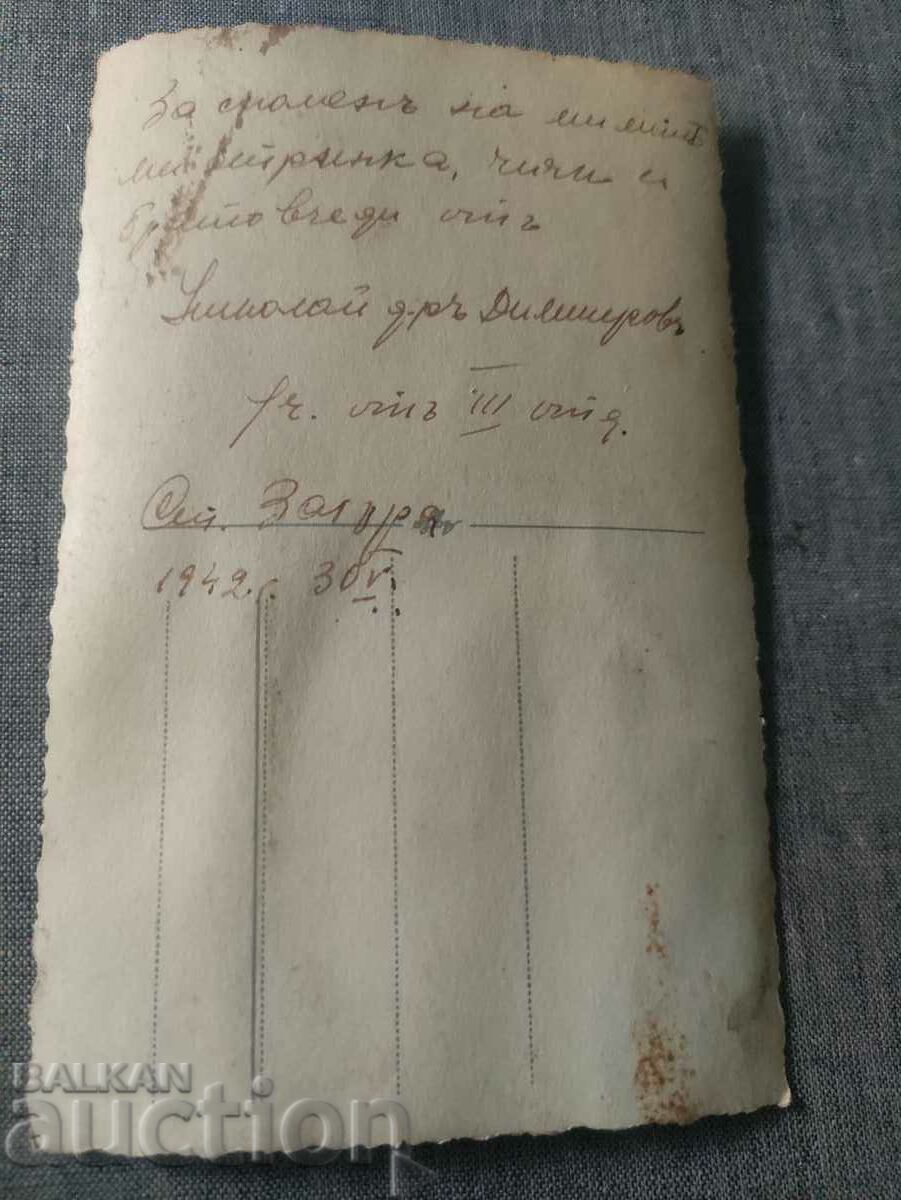 За споменъ на милитѣ
ми стринка, чичи и
братовчеди отъ
Николай д-ръ Димитровъ
уч. отъ III отд.
Ст. Загора
1942 г. 30 V
BALKAN
auction